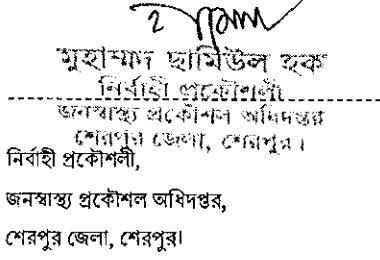 মুহাম্মদ ছামিউল হক
নির্বাহী প্রকৌশলী
জনস্বাস্থ্য প্রকৌশল অধিদপ্তর
শেরপুর জেলা, শেরপুর।
নির্বাহী প্রকৌশলী,
জনস্বাস্থ্য প্রকৌশল অধিদপ্তর,
শেরপুর জেলা, শেরপুর।